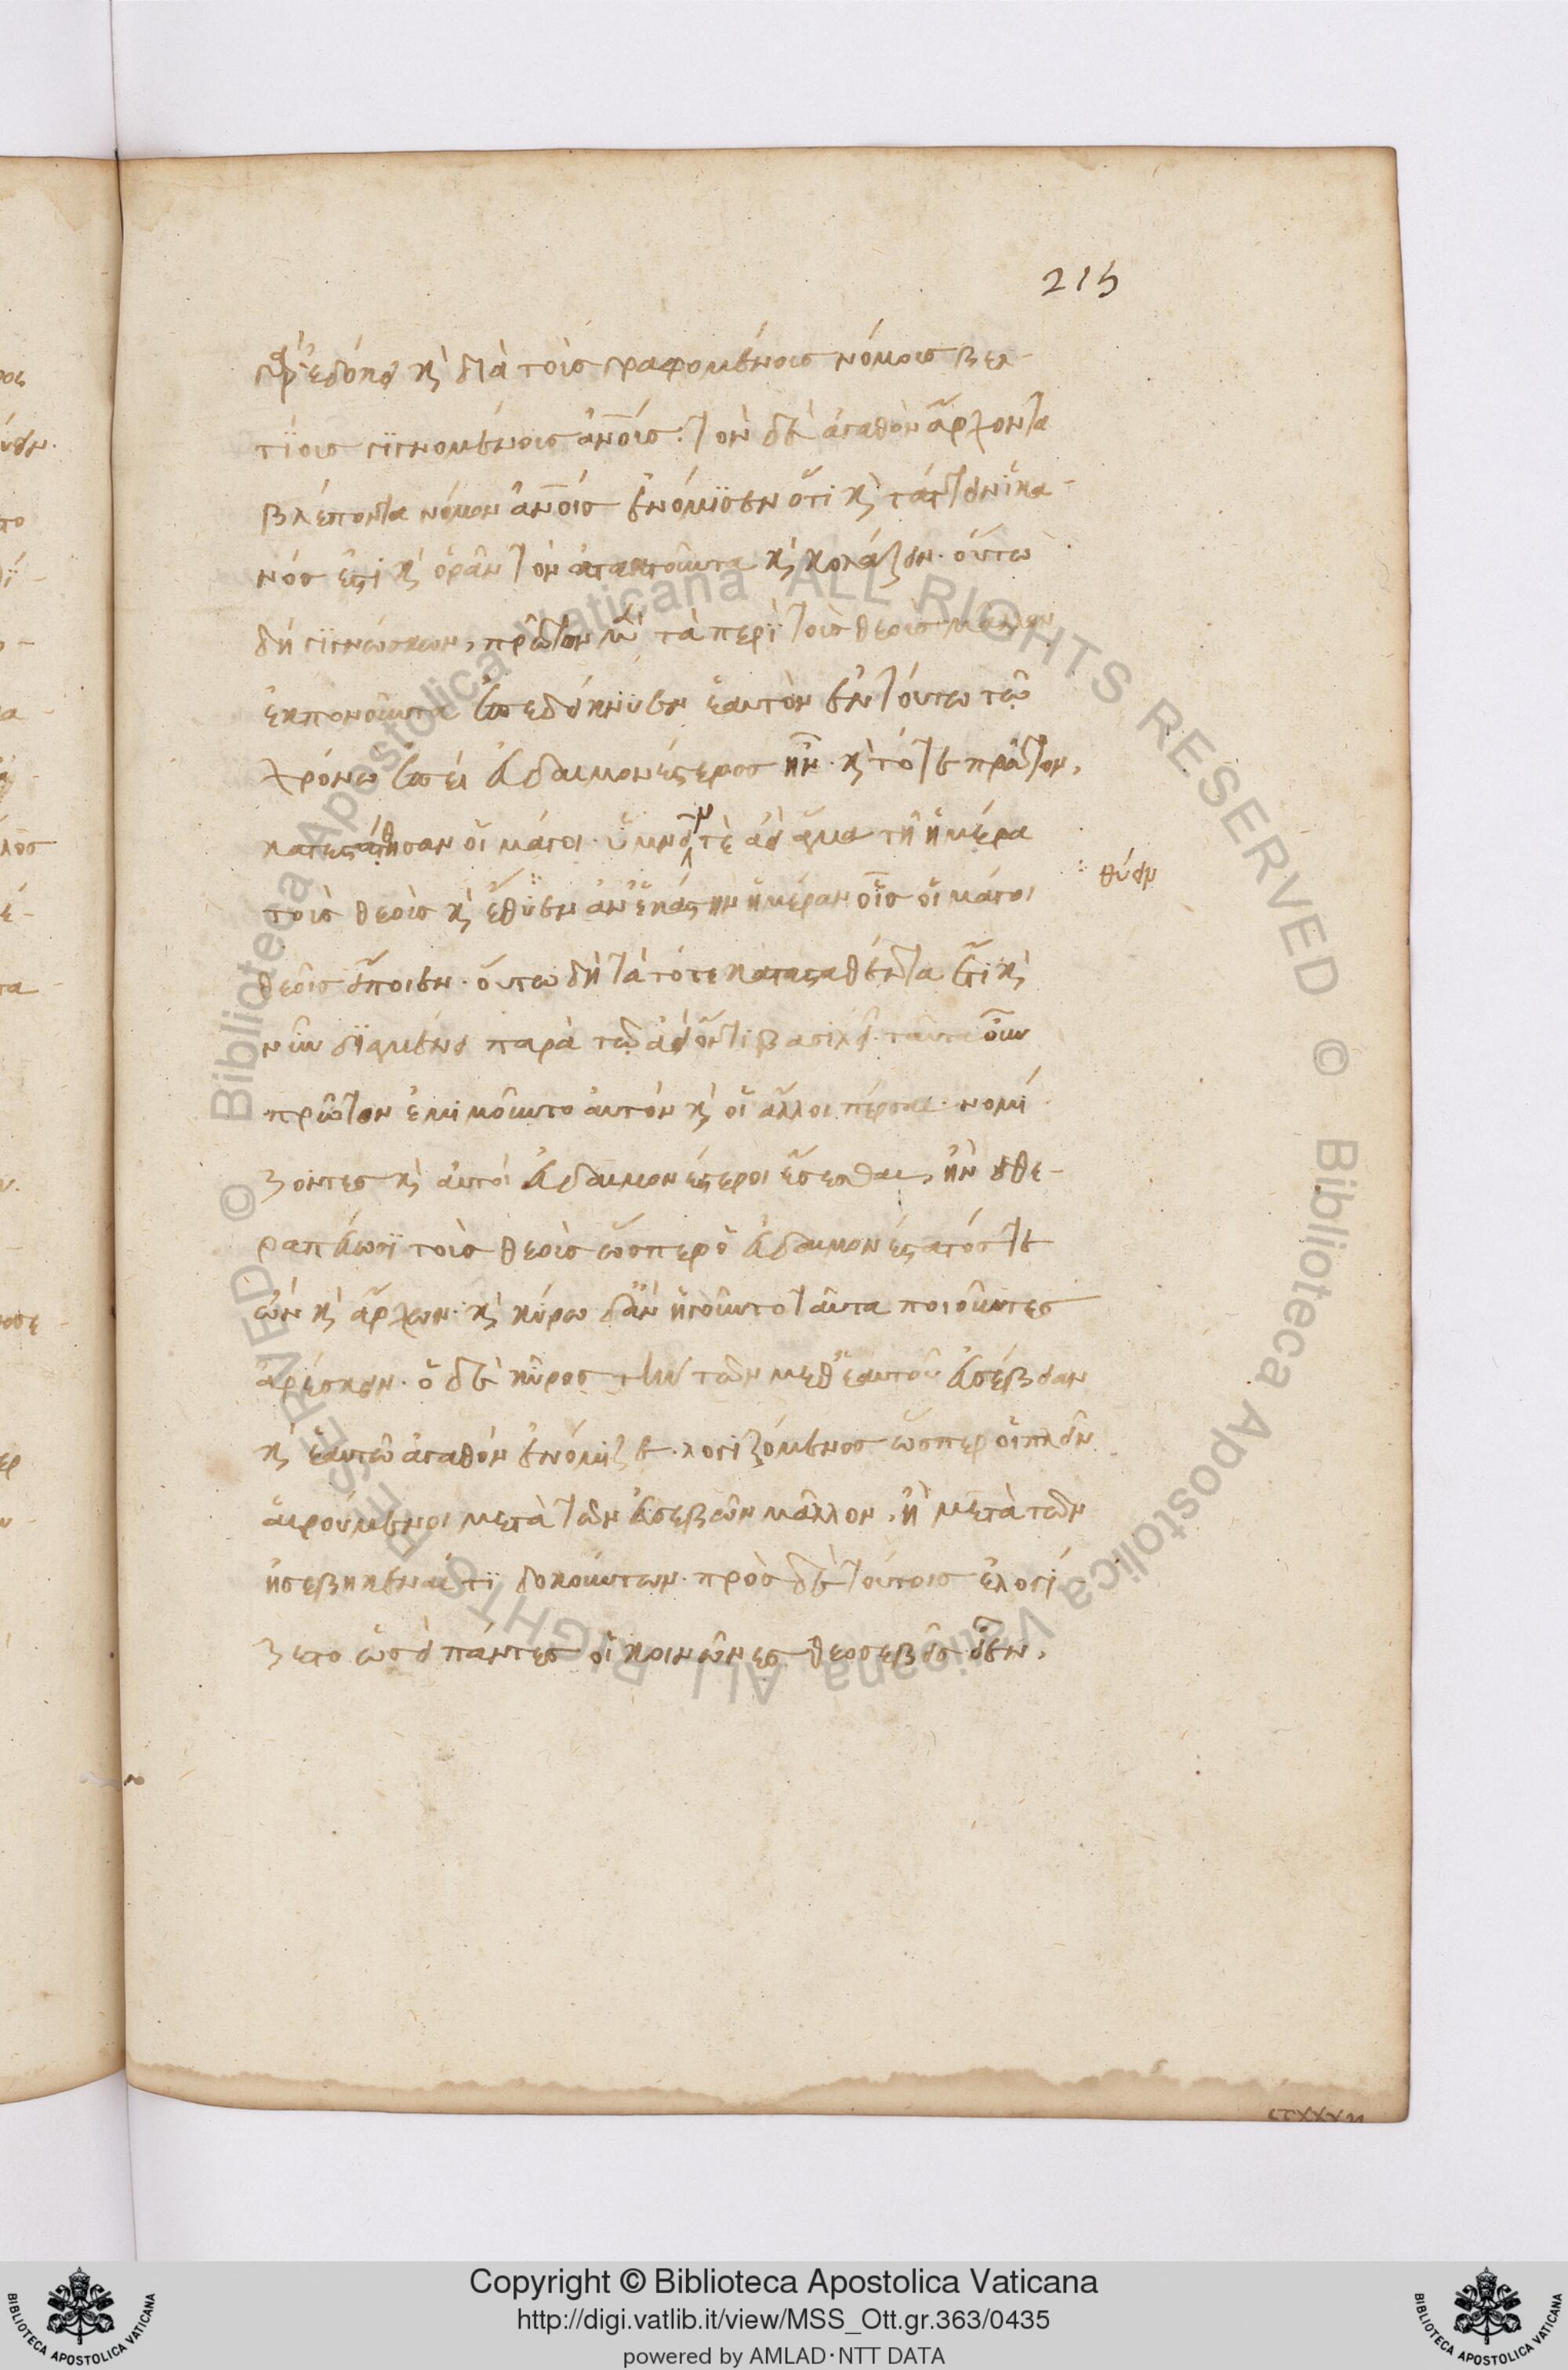 215
μὲν γὰρ ἐδόκει καὶ διὰ τοὺς γραφομένους νόμους βελ-
τίους γιγνομένους ἀν̅ους· τὸν δὲ ἀγαθὸν ἄρχοντα
βλέποντα νόμον ἀν̅οις ἐνόμισεν ὅτι καὶ τάττειν ἱκα-
νός ἐστι καὶ ὁρᾶν τὸν ἀτακτοῦντα καὶ κολάζειν. οὕτω
δὴ γιγνώσκων, πρῶτον μὲν τὰ περὶ τοὺς θεοὺς μᾶλλον
ἐκπονοῦντα ἐπεδείκνυεν ἑαυτὸν ἐν τούτω τῶ
χρόνω ἐπεὶ εὐδαιμονέστερος ἦν. καὶ τότε πρῶτον,
κατεστάθησαν οἱ μάγοι· ὑμνεῖν τὲ ἀεὶ ἅμα τῆ ἡμέρα
τοὺς θεοὺς καὶ ἔθυεν ἀν ἑκάστην ἡμέραν οἷς οἱ μάγοι
θύειν
θεοῖς εἴποιεν. οὕτω δὴ τὰ τότε κατασταθέντα ἔτι καὶ
νῦν διαμένει παρὰ τῶ ἀεὶ ὄντι βασιλεῖ. ταῦτα οὖν
πρῶτον ἐμιμοῦντο αὐτὸν καὶ οἱ ἄλλοι πέρσαι· νομί-
ζοντες καὶ αὐτοὶ εὐδαιμονέστεροι ἔσεσθαι, ἢν θε-
ραπεύωσι τοὺς θεοὺς ὥσπερ ὁ εὐδαιμονέστατός τε
ὢν καὶ ἄρχων. καὶ κύρω δ'ἂν ἡγοῦντο ταῦτα ποιοῦντες
ἀρέσκειν. ὁ δὲ κῦρος τὴν τῶν μεθ'ἑαυτοῦ εὐσέβειαν
καὶ ἑαυτῶ ἀγαθὸν ἐνόμιζε. λογιζόμενος ὥσπερ οἱ πλεῖν
αἱρούμενοι μετὰ τῶν εὐσεβῶν μᾶλλον, ἢ μετὰ τῶν
ἠσεβηκέναι τὶ δοκούντων. πρὸς δὲ τούτοις ἐλογί-
ζετο ὡς εἰ πάντες οἱ κοινῶνες θεοσεβεῖς εἶεν,
© Biblioteca Apostolica Vaticana ALL RIGHTS RESERVED © Biblioteca Apostolica Vaticana ALL RIGHTS RESERVED
Copyright © Biblioteca Apostolica Vaticana
http://digi.vatlib.it/view/MSS_Ott.gr.363/0435
powered by AMLAD·NTT DATA
BIBLIOTECA APOSTOLICA VATICANA
BIBLIOTECA APOSTOLICA VATICANA